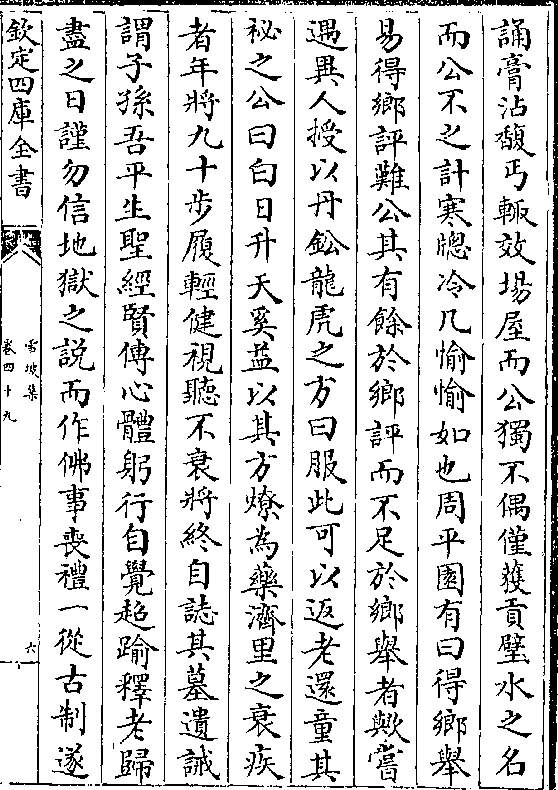 誦膏沾馥丐輙效場屋而公獨不偶僅獲貢璧水之名
而公不之計寒牕冷几愉愉如也周平園有曰得鄉舉
易得鄉評難公其有餘於鄉評而不足於鄉舉者歟嘗
遇異人授以丹鉛龍虎之方曰服此可以返老還童其
祕之公曰白日升天奚益以其方燎為藥濟里之衰疾
者年將九十步履輕健視聽不衰將終自誌其墓遺誡
謂子孫吾平生聖經賢傳心體躬行自覺超踰釋老歸
盡之日謹勿信地獄之説而作佛事喪禮一從古制遂
欽定四庫全書
雪坡集
卷四十九
六